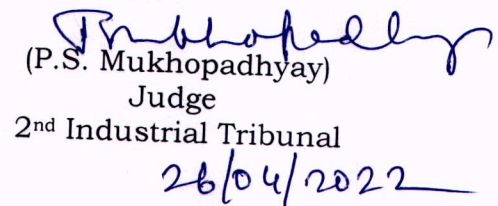 (P.S. Mukhopadhyay)
Judge
2nd Industrial Tribunal
26/04/2022